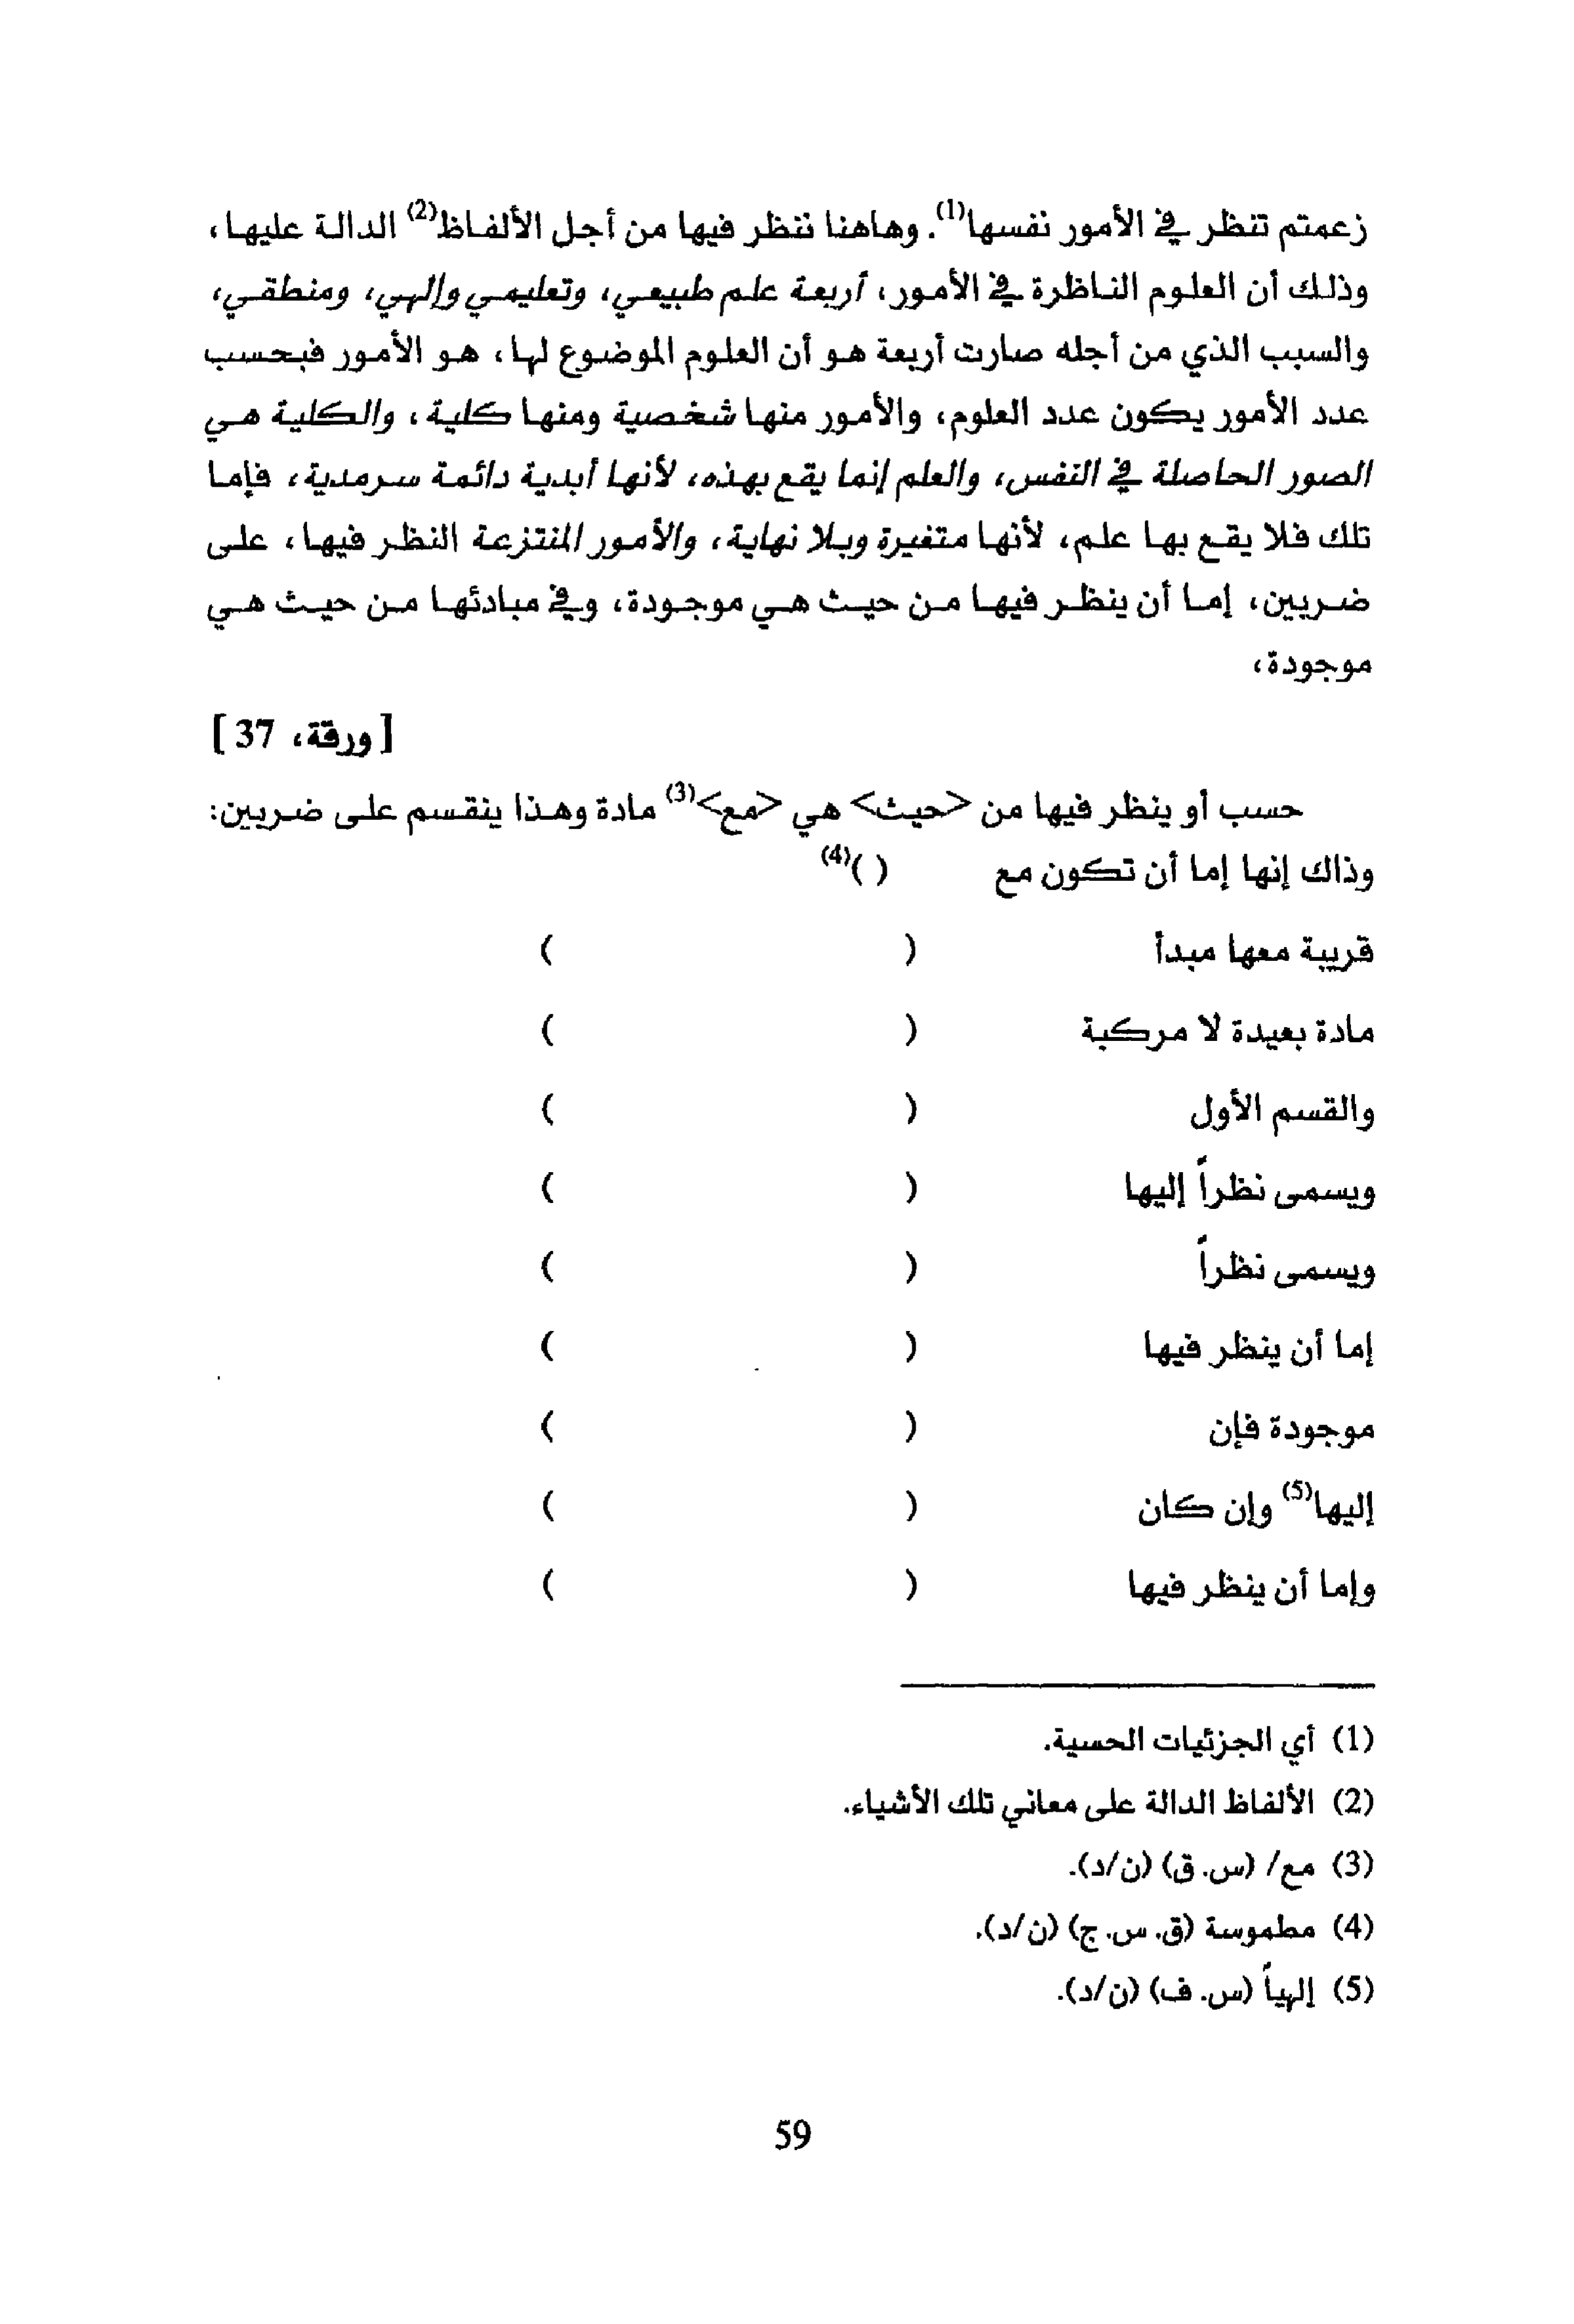 زعمتم تنظر في الأمور نفسها(1). وهاهنا ننظر فيها من أجل الألفاظ(2) الدالة عليها،
وذلك أن العلوم الناظرة في الأمور، أربعة علم طبيعي، وتعليمي وإلهي، ومنطقي،
والسبب الذي من أجله صارت أربعة هو أن العلوم الموضوع لها، هو الأمور فبحسب
عدد الأمور يكون عدد العلوم، والأمور منها شخصية ومنها كلية، والكلية هي
الصور الحاصلة في النفس، والعلم إنما يقع بهذه، لأنها أبدية دائمة سرمدية، فإما
تلك فلا يقع بها علم، لأنها متغيرة وبلا نهاية، والأمور المنتزعة النظر فيها، على
ضربين، إما أن ينظر فيها من حيث هي موجودة، وفي مبادئها من حيث هي
موجودة،
[ورقة، 37]
حسب أو ينظر فيها من <حيث> هي <مع>(3) مادة وهذا ينقسم على ضربين:
وذاك إنها إما أن تكون مع ( )(4)
قريبة معها مبدأ ( )
مادة بعيدة لا مركبة ( )
والقسم الأول ( )
ويسمى نظراً إليها ( )
ويسمى نظراً ( )
إما أن ينظر فيها ( )
موجودة فإن ( )
إليها(5) وإن كان ( )
وإما أن ينظر فيها ( )
(1) أي الجزئيات الحسية.
(2) الألفاظ الدالة على معاني تلك الأشياء.
(3) مع/ (س. ق) (ن/د).
(4) مطموسة (ق. س. ج) (ن/د).
(5) إلهياً (س. ف) (ن/د).
59